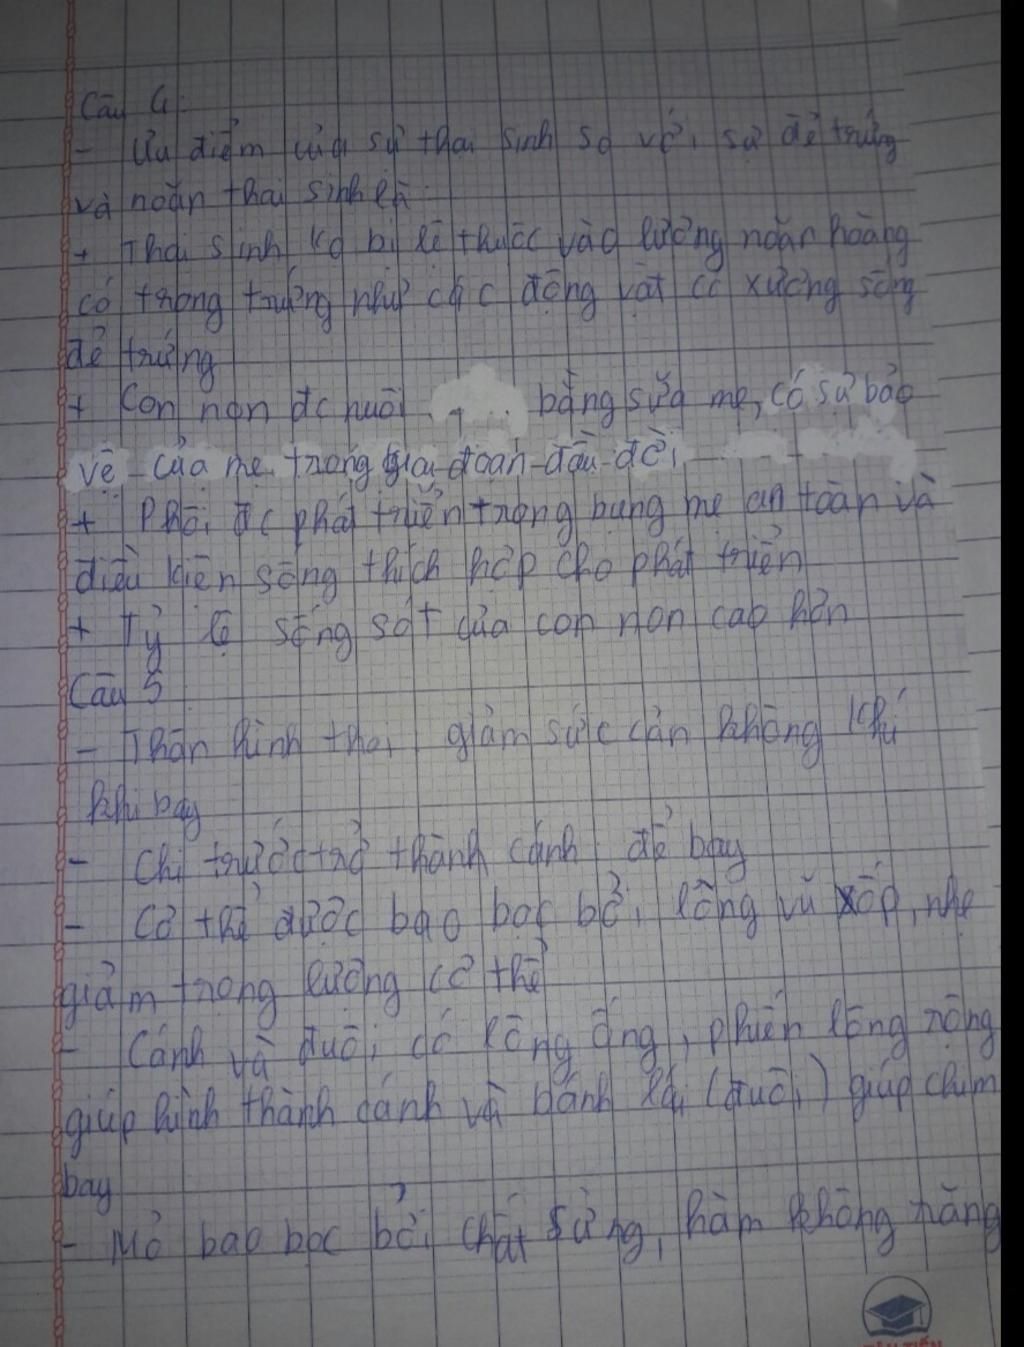 Câu 4:
- Ưu điểm của sự thai sinh so với sự đẻ trứng
và noãn thai sinh là:
+ Thai sinh ko bị lệ thuộc vào lượng noãn hoàng
có trong trứng như các động vật có xương sống
đẻ trứng
+ Con non đc nuôi bằng sữa mẹ, có sự bảo
vệ của mẹ trong giai đoạn đầu đời
+ Phôi đc phát triển trong bụng mẹ an toàn và
điều kiện sống thích hợp cho phát triển
+ Tỷ lệ sống sót của con non cao hơn
Câu 5
- Thân hình thoi giảm sức cản không khí
khi bay
- Chi trước trở thành cánh để bay
- Cơ thể được bao bọc bởi lông vũ xốp, nhẹ
giảm trọng lượng cơ thể
- Cánh và đuôi có lông ống, phiến lông rộng
giúp hình thành cánh và bánh lái (đuôi) giúp chim
bay
- Mỏ bao bọc bởi chất sừng, hàm không răng